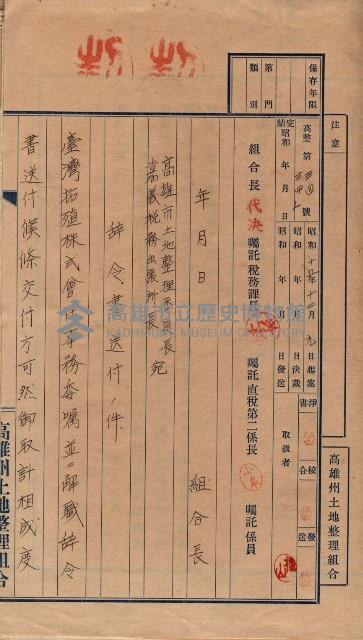 保存年限
第門
類別
注意
高整第 號
完結昭和 年 月 日
昭和十五年十一月九日起案
昭和 年 月 日決裁
昭和 年 月 日發送
淨書
校合
發送
取扱者
組合長 代決 囑託税務課長 囑託直税第二係長 囑託係員
年月日
組合長
高雄市土地整理委員長
嘉義税務出張所長 宛
辞令書送付ノ件
臺灣拓殖株式會社事務委囑並ニ解職辞令
書送付候條交付方可然御取計相成度
高雄州土地整理組合
高雄州土地整理組合
高雄市立歷史博物館
KAOHSIUNG MUSEUM OF HISTORY